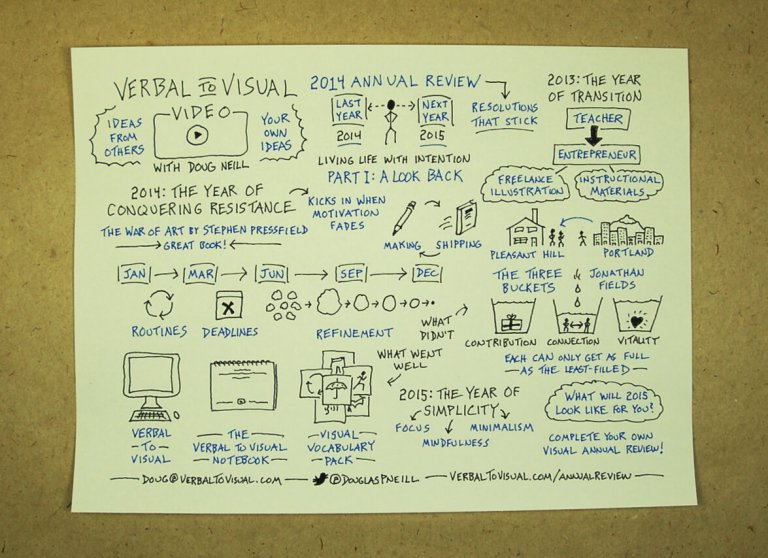 VERBAL TO VISUAL
IDEAS
FROM
OTHERS
VIDEO
YOUR
OWN
IDEAS
WITH DOUG NEILL
2014 ANNUAL REVIEW
LAST
YEAR
NEXT
YEAR
2014
2015
RESOLUTIONS
THAT STICK
LIVING LIFE WITH INTENTION
PART I: A LOOK BACK
2013: THE YEAR
OF TRANSITION
TEACHER
ENTREPRENEUR
FREELANCE
ILLUSTRATION
INSTRUCTIONAL
MATERIALS
2014: THE YEAR OF
CONQUERING RESISTANCE
KICKS IN WHEN
MOTIVATION
FADES
THE WAR OF ART BY STEPHEN PRESSFIELD
GREAT BOOK!
MAKING
SHIPPING
PLEASANT HILL
PORTLAND
JAN
MAR
JUN
SEP
DEC
ROUTINES
DEADLINES
REFINEMENT
THE THREE
BUCKETS
JONATHAN
FIELDS
WHAT
DIDN'T
CONTRIBUTION
CONNECTION
VITALITY
EACH CAN ONLY GET AS FULL
AS THE LEAST-FILLED
WHAT WENT
WELL
VERBAL
TO
VISUAL
THE
VERBAL TO VISUAL
NOTEBOOK
VISUAL
VOCABULARY
PACK
2015: THE YEAR OF
SIMPLICITY
FOCUS
MINIMALISM
MINDFULNESS
WHAT WILL 2015
LOOK LIKE FOR YOU?
COMPLETE YOUR OWN
VISUAL ANNUAL REVIEW!
DOUG@VERBALTOVISUAL.COM
@DOUGLASPNEILL
VERBALTOVISUAL.COM/ANNUALREVIEW